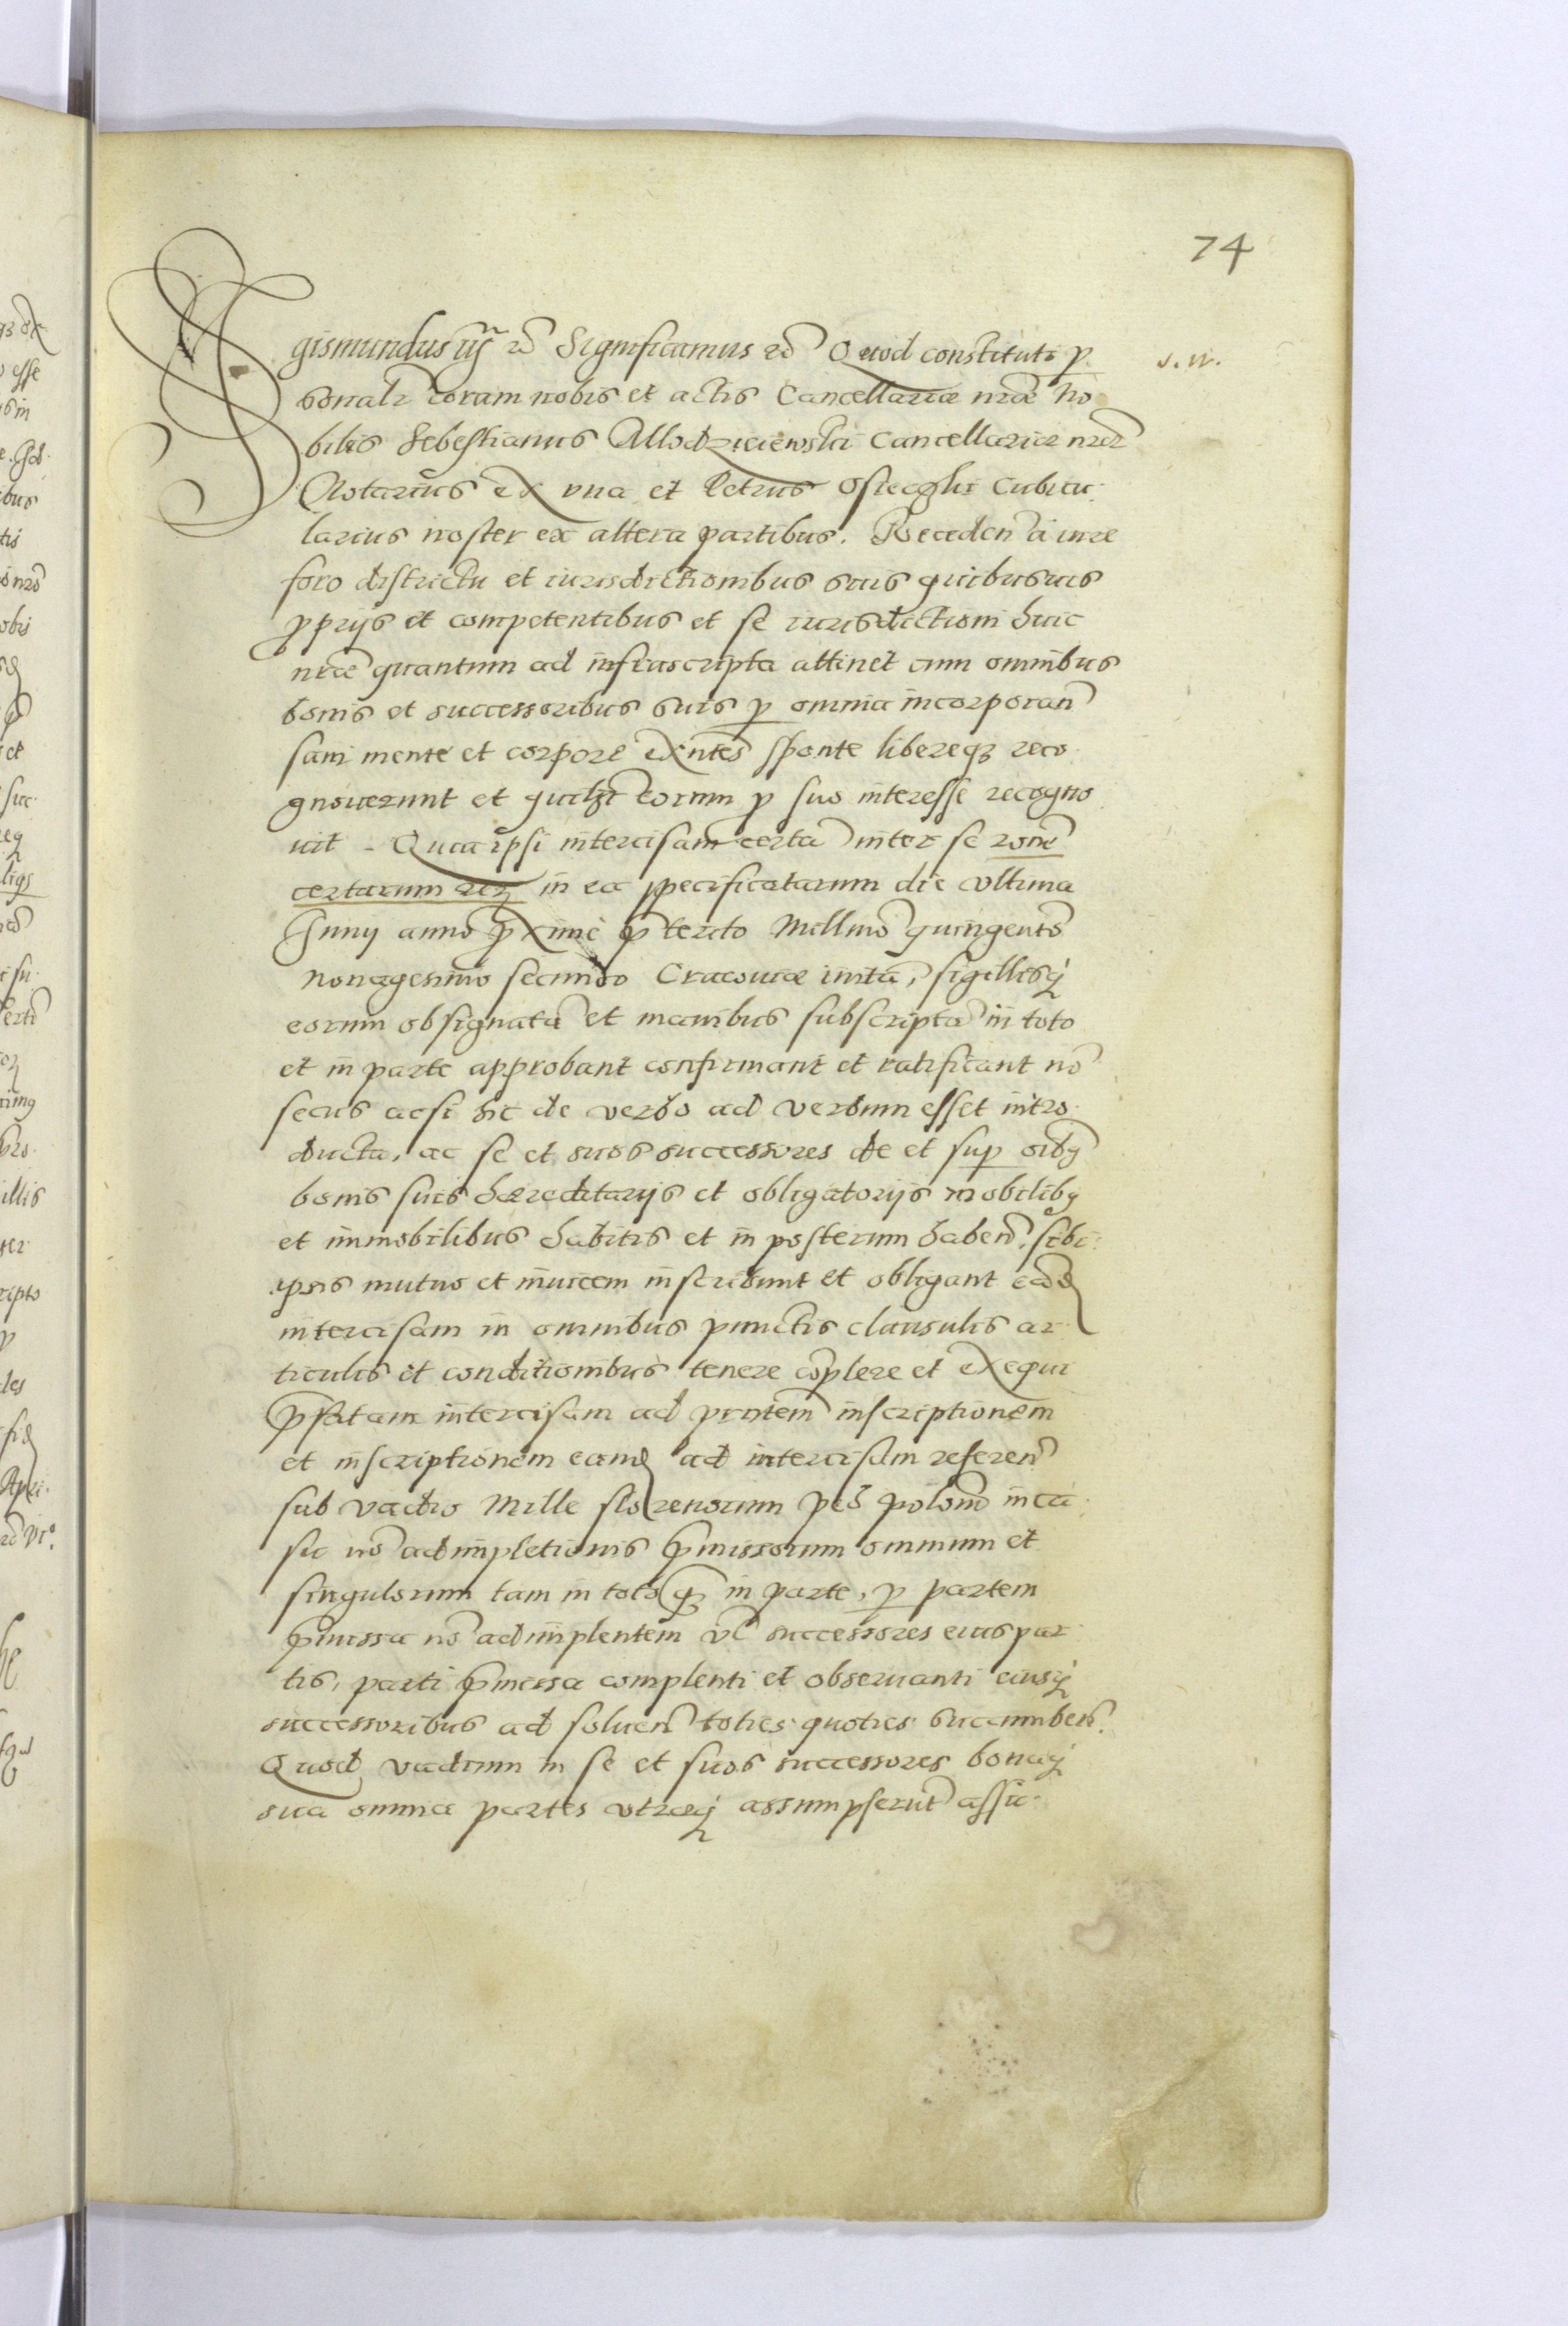 74
Sigismundus iij etc Significamus etc Quod constituti p
sonalr coram nobis et actis Cancellariæ nræ No
bilis Sebestianus Mlodzieiewski Cancellariæ nræ
Notarius ex vna et Petrus Osieczki Cubicu
larius noster ex altera partibus. Receden a iure
foro districtu et iurisdictionibus suis quibusuis
pprijs et competentibus et se iurisdictioni huic
nræ quantum ad infrascripta attinet cum omnibus
bonis et successoribus suis p omnia incorporan
sani mente et corpore exntes sponte libereqz reco
gnouerunt et quilzt eorum p suo interesse recogno
uit. Quia ipsi intercisam certa inter se rone
certarum rer in ea specificatarum die vltima
Iunij anno pxime pterito Millmo quingento
nonagesimo secundo Cracouiæ inita, sigillisq
eorum obsignata et manibus subscripta in toto
et in parte approbant confirmant et ratificant no
secus acsi hic de verbo ad verbum esset intro
ducta, ac se et suos successores de et sup oibq
bonis suis hæreditarijs et obligatorijs mobilibq
et immobilibus habitis et in posterum haben. sibi
ipsis mutuo et inuicem inscribunt et obligant eand
intercisam in omnibus punctis clausulis ar
ticulis et conditionibus tenere coplere et exequi
pfatam intercisam ad pntem inscriptionem
et inscriptionem eand ad intercisam referen
sub vadio Mille florenorum pec polon in ca
su no adimpletionis pmissorum omnium et
singulorum tam in toto qz in parte, p partem
pmissa no adimplentem vl successores eius par
tis, parti pmissa complenti et obseruanti eiusq
successoribus ad soluen toties quoties succumben.
Quod vadium in se et suos successores bonaq
sua omnia partes vtræq assumpserut assu